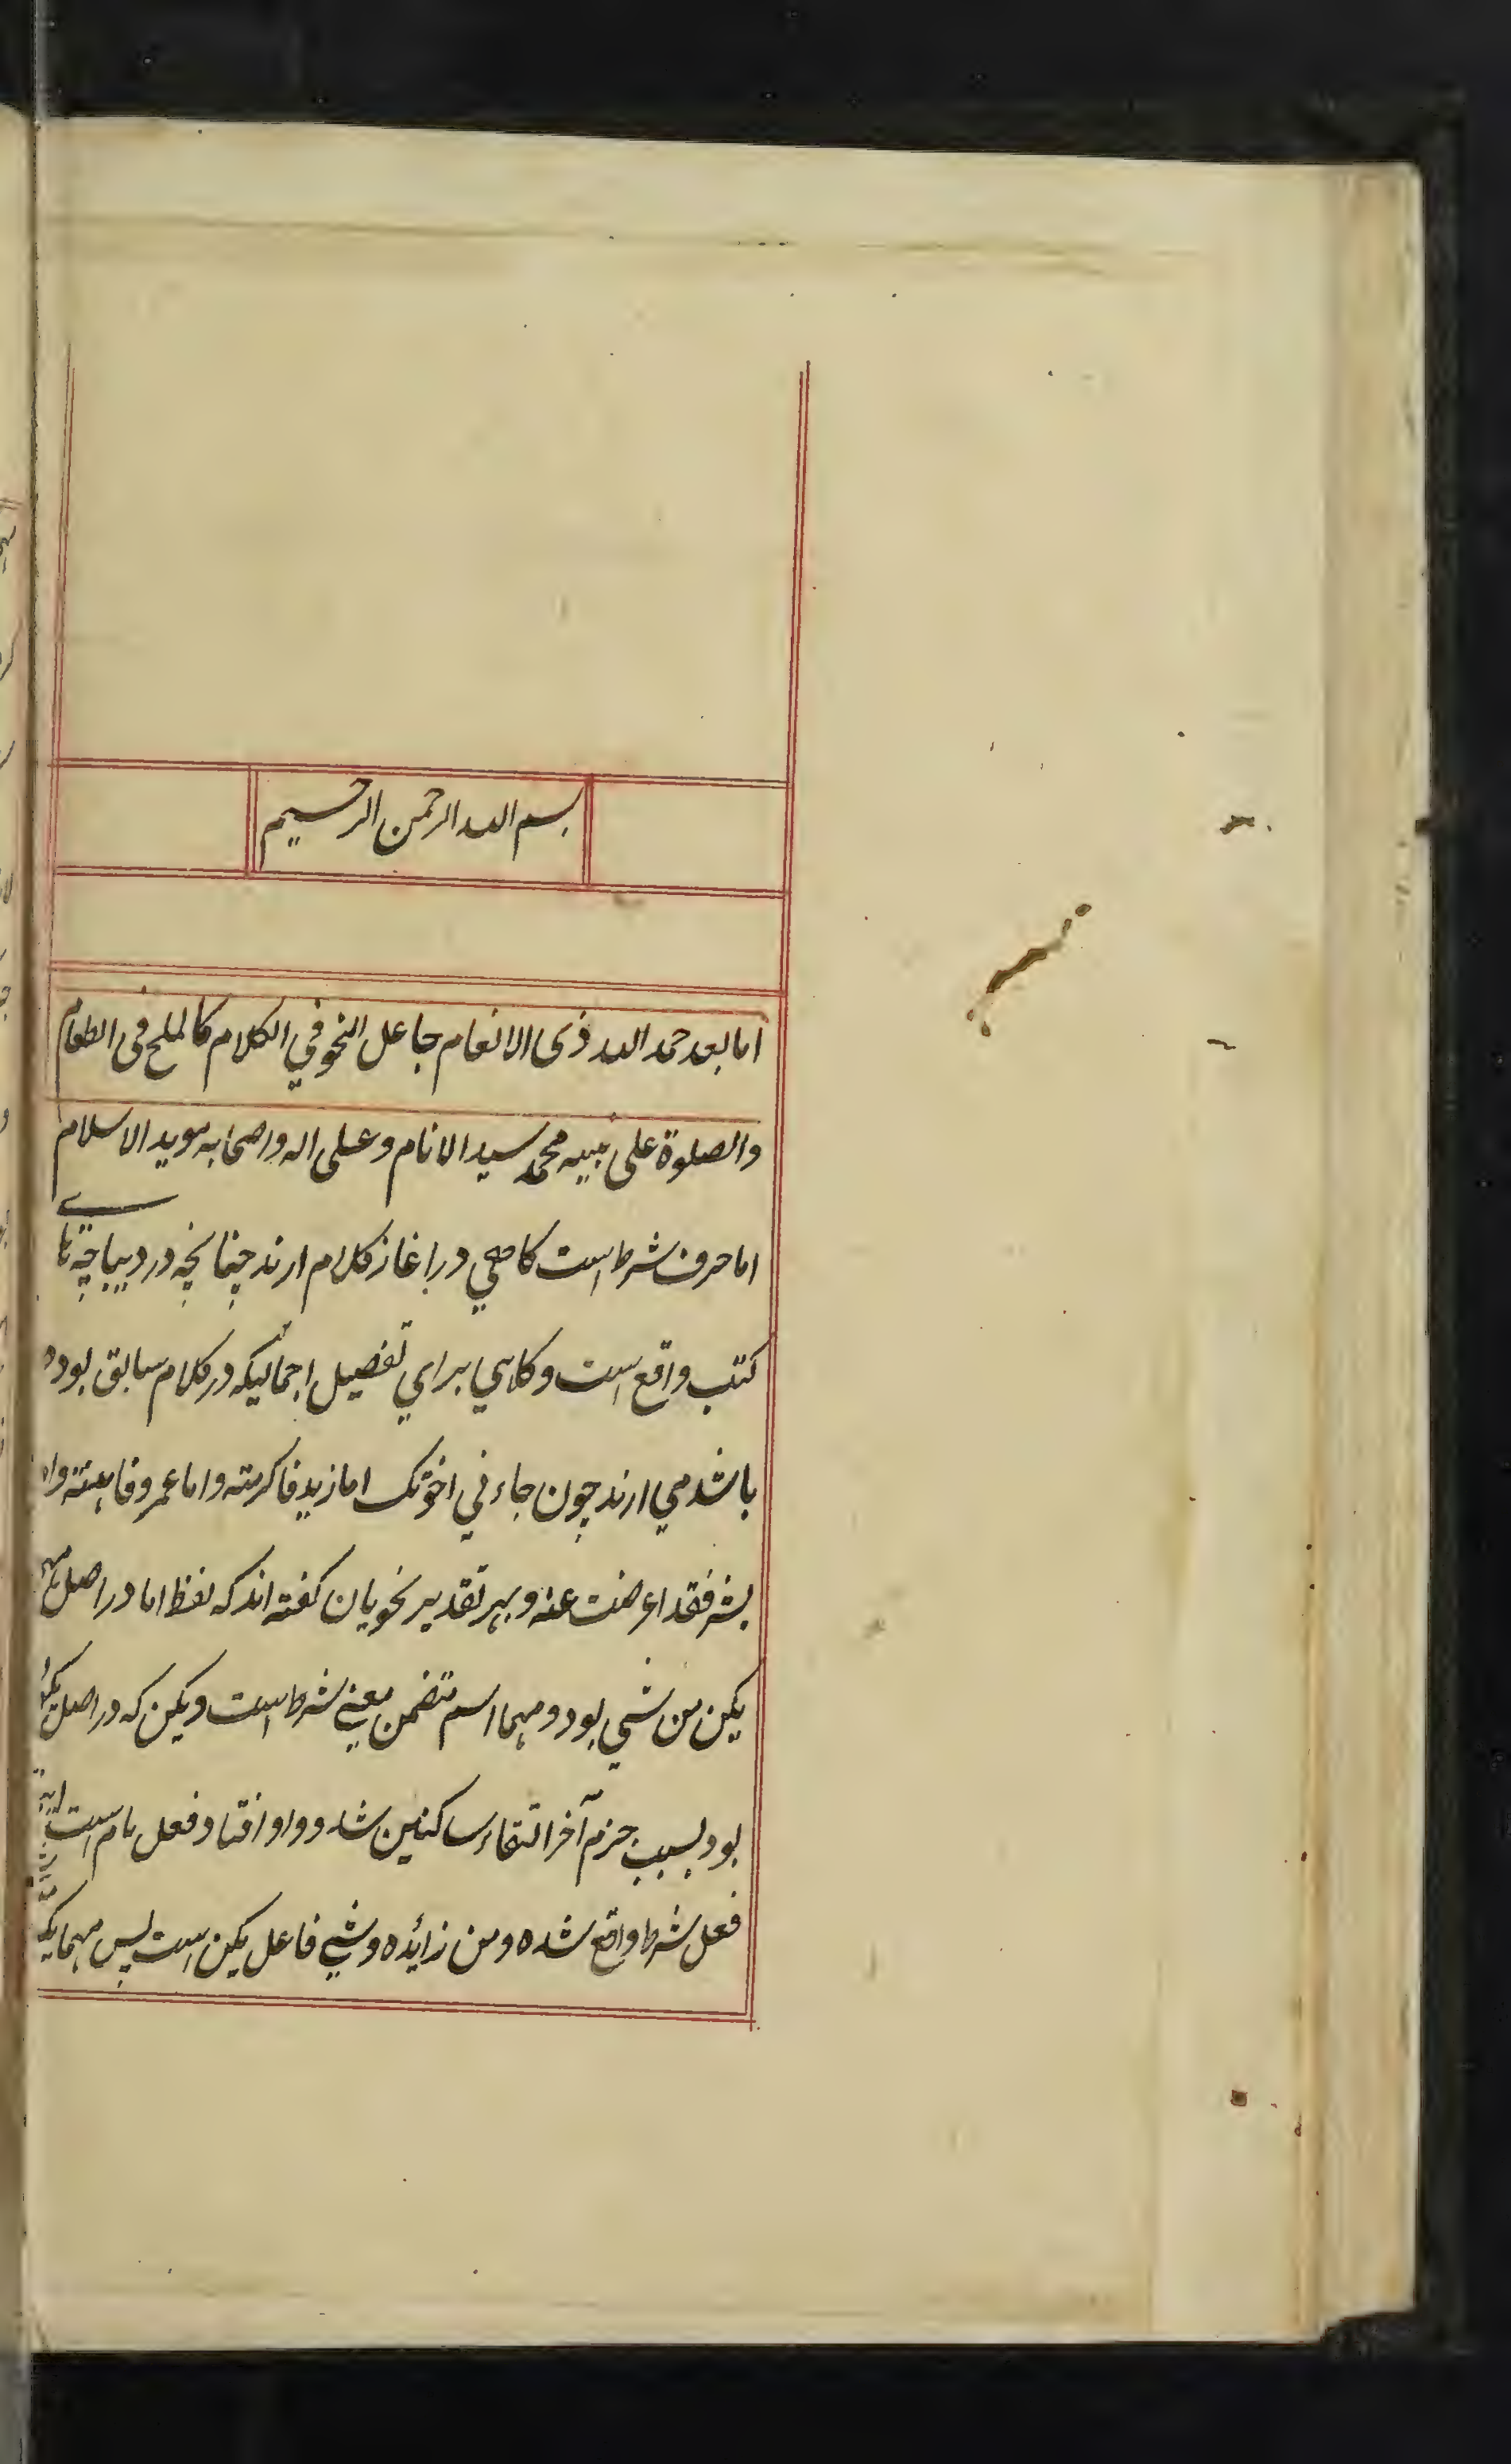 بسم الله الرحمن الرحیم
اما بعد حمد الله ذی الانعام جاعل النحو في الکلام کالملح فی الطعام
والصلوة علی نبیه محمد سید الانام وعلی اله واصحابه موید الاسلام
اما حرف شرط است کاهي در اغاز کلام ارند چنانچه در دیباچه
کتب واقع است وکاهي براي تفصیل اجمالیکه در کلام سابق بوده
باشد مي ارند چون جاءني اخوتک اما زید فاکرمته واما عمرو فاهنته واما
بشر فقد اعرضت عنه وبهر تقدیر نحویان کفته اند که لفظ اما در اصل مهما
یکن من شي بود ومهما اسم متضمن معني شرط است ویکن که در اصل
بود بسبب جزم آخر التقاء ساکنین شد وواو افتاد فعل تام است
فعل شرط واقع شده ومن زائده وشي فاعل یکن است پس مهما